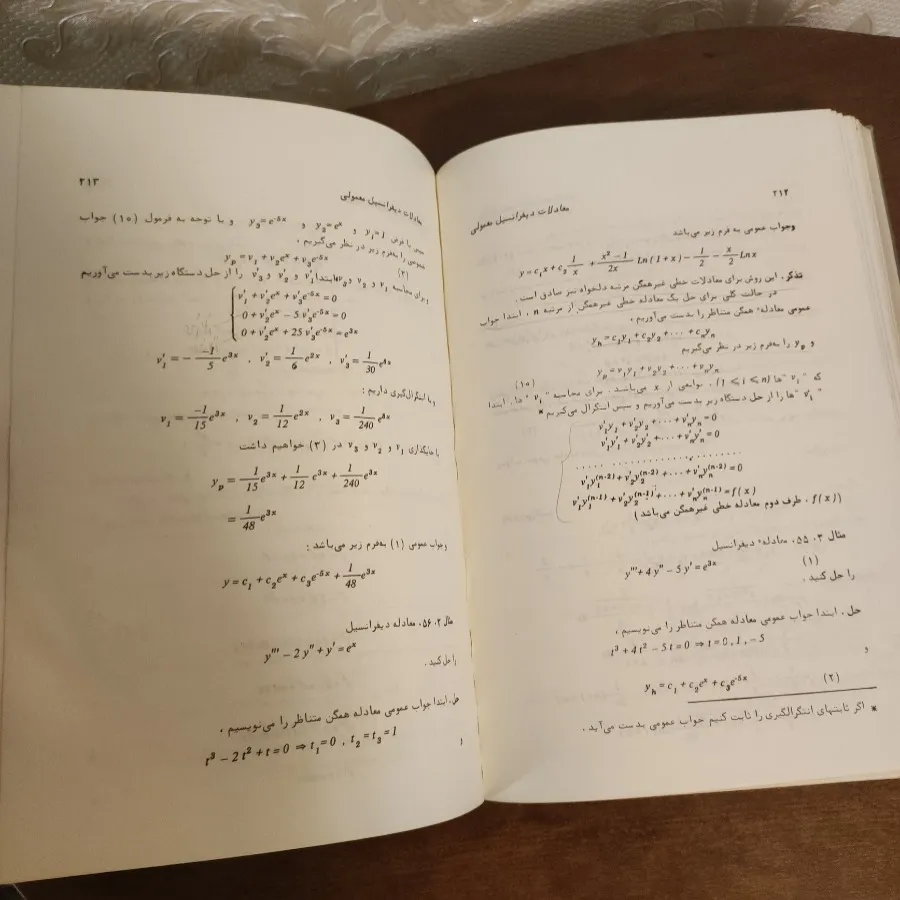 ۲۱۲
معادلات دیفرانسیل معمولی
وجواب عمومی به فرم زیر می‌باشد
y = c₁x + c₂ 1/x + (x² − 1)/2x Ln(1+x) − 1/2 − x/2 Lnx
تذکر. این روش برای معادلات خطی غیرهمگن مرتبه دلخواه نیز صادق است.
در حالت کلی برای حل یک معادله خطی غیرهمگن از مرتبه n، ابتدا جواب
عمومی معادله همگن متناظر را بدست می‌آوریم.
yₕ = c₁y₁ + c₂y₂ + ... + cₙyₙ
و yₚ را به‌فرم زیر در نظر می‌گیریم
yₚ = v₁y₁ + v₂y₂ + ... + vₙyₙ (۱۰)
که "vᵢ" ها (1 ≤ i ≤ n)، توابعی از x می‌باشند. برای محاسبه "vᵢ" ها، ابتدا
"v′ᵢ" ها را از حل دستگاه زیر بدست می‌آوریم و سپس انتگرال می‌گیریم*
v′₁y₁ + v′₂y₂ + ... + v′ₙyₙ = 0
v′₁y′₁ + v′₂y′₂ + ... + v′ₙy′ₙ = 0
..... ......................
v′₁y₁⁽ⁿ⁻²⁾ + v′₂y₂⁽ⁿ⁻²⁾ + ... + v′ₙyₙ⁽ⁿ⁻²⁾ = 0
v′₁y₁⁽ⁿ⁻¹⁾ + v′₂y₂⁽ⁿ⁻¹⁾ + ... + v′ₙyₙ⁽ⁿ⁻¹⁾ = f(x)
(f(x)، طرف دوم معادله خطی غیرهمگن می‌باشد)
مثال ۳.۵۵. معادله دیفرانسیل
y‴ + 4y″ − 5y′ = e³ˣ (۱)
را حل کنید.
حل. ابتدا جواب عمومی معادله همگن متناظر را می‌نویسیم.
t³ + 4t² − 5t = 0 ⇒ t = 0, 1, −5
و
yₕ = c₁ + c₂eˣ + c₃e⁻⁵ˣ (۲)
* اگر ثابتهای انتگرالگیری را ثابت کنیم جواب عمومی بدست می‌آید.
۲۱۳
معادلات دیفرانسیل معمولی
سپس با فرض y₁ = 1 و y₂ = eˣ و y₃ = e⁻⁵ˣ و با توجه به فرمول (۱۰) جواب
عمومی را به‌فرم زیر در نظر می‌گیریم.
yₚ = v₁ + v₂eˣ + v₃e⁻⁵ˣ (۳)
و برای محاسبه v₁ و v₂ و v₃ ابتدا v′₁ و v′₂ و v′₃ را از حل دستگاه زیر بدست می‌آوریم
v′₁ + v′₂eˣ + v′₃e⁻⁵ˣ = 0
0 + v′₂eˣ − 5v′₃e⁻⁵ˣ = 0
0 + v′₂eˣ + 25v′₃e⁻⁵ˣ = e³ˣ
v′₁ = − −1/5 e³ˣ , v′₂ = 1/6 e²ˣ , v′₃ = 1/30 e⁸ˣ
و با انتگرال‌گیری داریم:
v₁ = −1/15 e³ˣ , v₂ = 1/12 e²ˣ , v₃ = 1/240 e⁸ˣ
با جایگذاری v₁ و v₂ و v₃ در (۳) خواهیم داشت
yₚ = 1/15 e³ˣ + 1/12 e³ˣ + 1/240 e³ˣ
= 1/48 e³ˣ
وجواب عمومی (۱) به‌فرم زیر می‌باشد:
y = c₁ + c₂eˣ + c₃e⁻⁵ˣ + 1/48 e³ˣ
مثال ۳.۵۶. معادله دیفرانسیل
y‴ − 2y″ + y′ = eˣ
را حل کنید.
حل. ابتدا جواب عمومی معادله همگن متناظر را می‌نویسیم.
t³ − 2t² + t = 0 ⇒ t₁ = 0 , t₂ = t₃ = 1